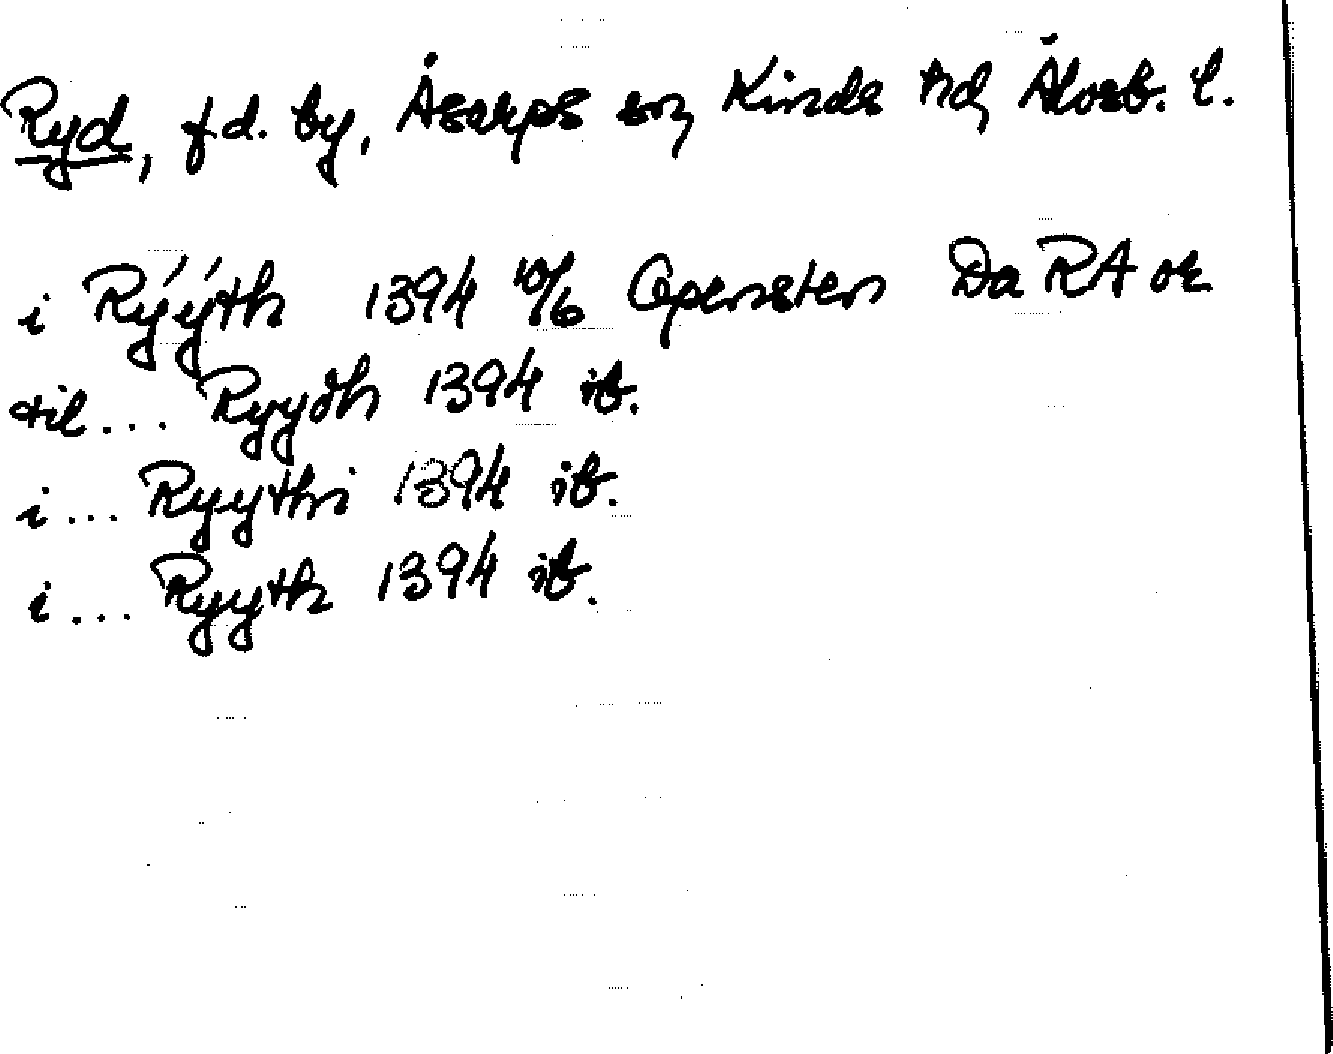 Ryd, f.d. by, Åsarps sn, Kinds hd, Älvsb. l.
i Rýýth 1394 10/6 Opensten Da RA or
til... Ryydh 1394 ib.
i... Ryythi 1394 ib.
i... Ryyth 1394 ib.